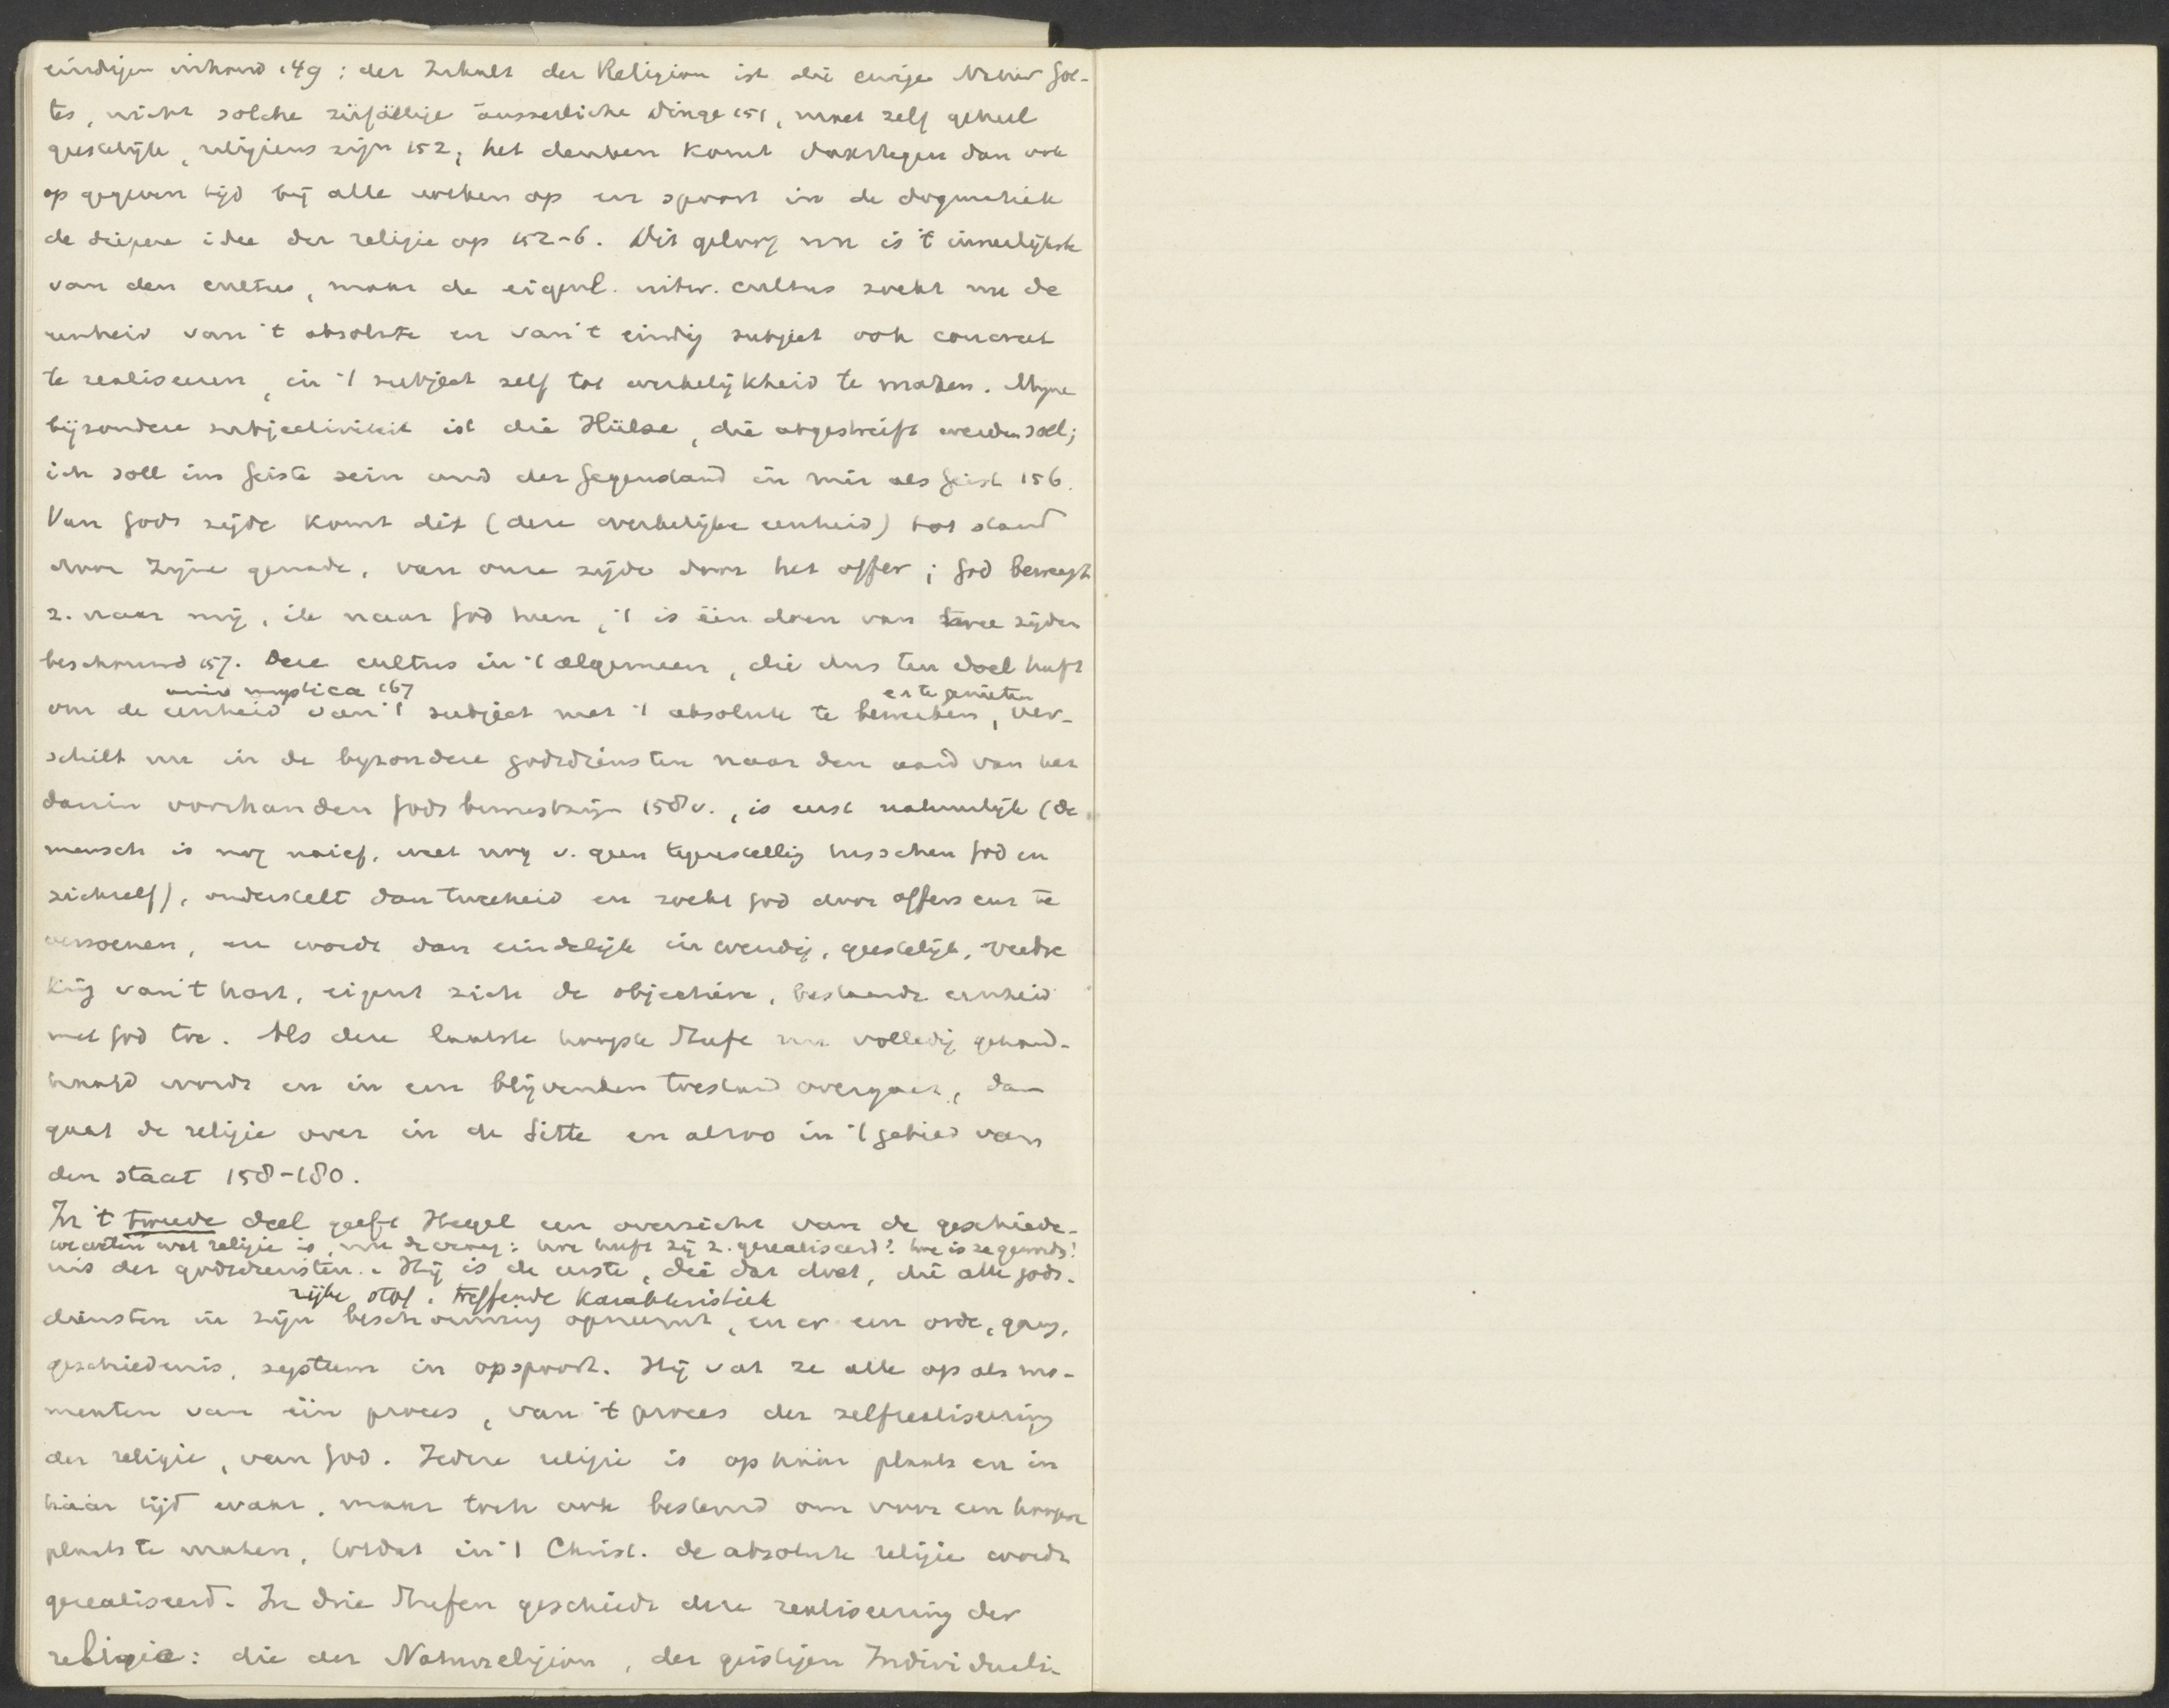 eindigen inhoud 149; der Inhalt der Religion ist die ewige Natur Got-
tes, nicht solche zufällige äusserliche Dinge 151, maar zelf geheel
geestelijk, religieus zijn 152; het denken komt daartegen dan ook
op gegeven tijd bij alle volken op en spoort in de dogmatiek
de diepere idee der religie op 152-6. Dit geloof nu is 't innerlijkste
van den cultus, maar de eigenl. uitw. cultus zoekt nu de
eenheid van 't absolute en van 't eindig subject ook concreet
te realiseeren, in 't subject zelf tot werkelijkheid te maken. Mijne
bijzondere subjectiviteit ist die Hülse, die abgestreift werden soll;
ich soll im Geiste sein und der Gegenstand in mir als Geist 156.
Van Gods zijde komt dit (deze werkelijke eenheid) tot stand
door Zijne genade, van onze zijde door het offer; God beweegt
z. naar mij, ik naar God heen, 't is één doen van twee zijden
beschouwd 157. Deze cultus in 't algemeen, die dus ten doel heeft
unio mystica 167 en te genieten
om de eenheid van 't subject met 't absolute te bewerken, ver-
schilt nu in de byzondere godsdiensten naar den aard van het
daarin voorhanden Godsbewustzijn 158v., is eerst natuurlijk (de
mensch is nog naief, weet nog v. geen tegenstelling tusschen God en
zichzelf), onderstelt dan tweeheid en zoekt God door offers enz te
verzoenen, en wordt dan eindelijk inwendig, geestelijk,
van 't hart, eigent zich de objectieve, bestaande eenheid
met God toe. Als deze laatste hoogste Stufe nu volledig gehand-
haafd wordt en in een blijvenden toestand overgaat, dan
gaat de religie over in de Sitte en alzoo in 't gebied van
den staat 158-180.
In 't tweede deel geeft Hegel een overzicht van de geschiede-
we weten wat religie is, nu de vraag: hoe heeft zij z. gerealiseerd? hoe is ze geworden?
nis der godsdiensten. Hij is de eerste, die dat doet, die alle gods-
rijke stof, treffende karakteristiek
diensten in zijn beschouwing opneemt, en er een orde, gang,
geschiedenis, systeem in opspoort. Hij vat ze alle op als mo-
menten van één proces, van 't proces der zelfrealiseering
der religie, van God. Iedere religie is op háár plaats en in
háár tijd waar, maar toch ook bestemd om voor een hoogere
plaats te maken, totdat in 't Christ. de absolute religie wordt
gerealiseerd. In drie Stufen geschiedt deze realiseering der
religie: die der Naturreligion, der geistigen Individuali-